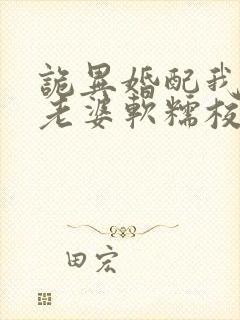 詭異婚配我
老婆軟糯
田宏